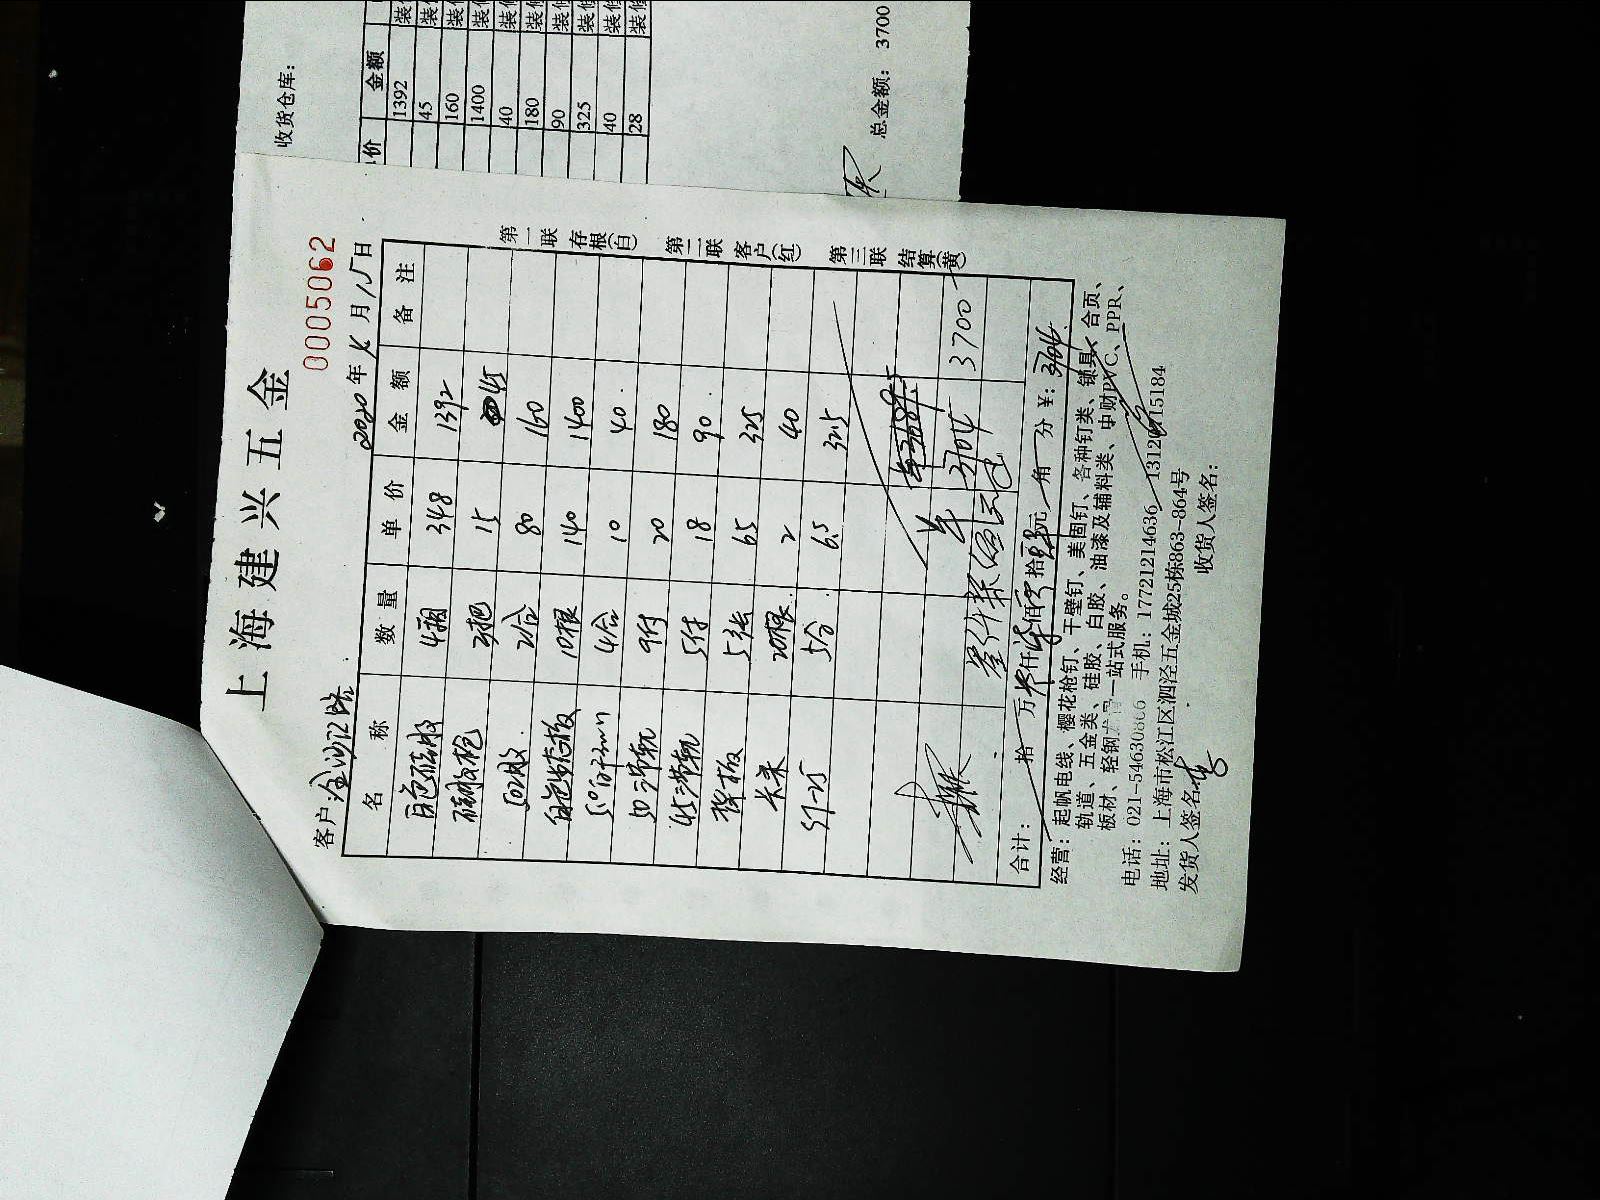 收货仓库：
价 金额
1392 装修
45 装修
160 装修
1400 装修
40 装修
180 装修
90 装修
325 装修
40 装修
28 装修
总金额： 3700
上海建兴五金
0005062
客户：金沙江路 2020年 月15日
名称 数量 单价 金额 备注
白色硅胶 4箱 348 1392
硅胶枪 3把 15 45
502胶 2合 80 160
10根 140 1400
4合 10 40
50三节轨 9付 20 180
45三节轨 5付 18 90
5张 65 325
20根 2 40
5合 6.5 32.5
3704
3700
合计： 拾 万 仟 佰 拾 元 角 分 ¥：3704
第一联 存根(白)
第二联 客户(红)
第三联 结算(黄)
经营：起帆电线、樱花枪钉、干壁钉、美固钉、各种钉类、锁具、合页、
轨道、五金类、硅胶、白胶、油漆及辅料类、中财PVC、PPR、
板材、轻钢龙骨一站式服务。
电话：021-54630866 手机：17721214636
地址：上海市松江区泗泾五金城25栋863-864号
发货人签名： 收货人签名：